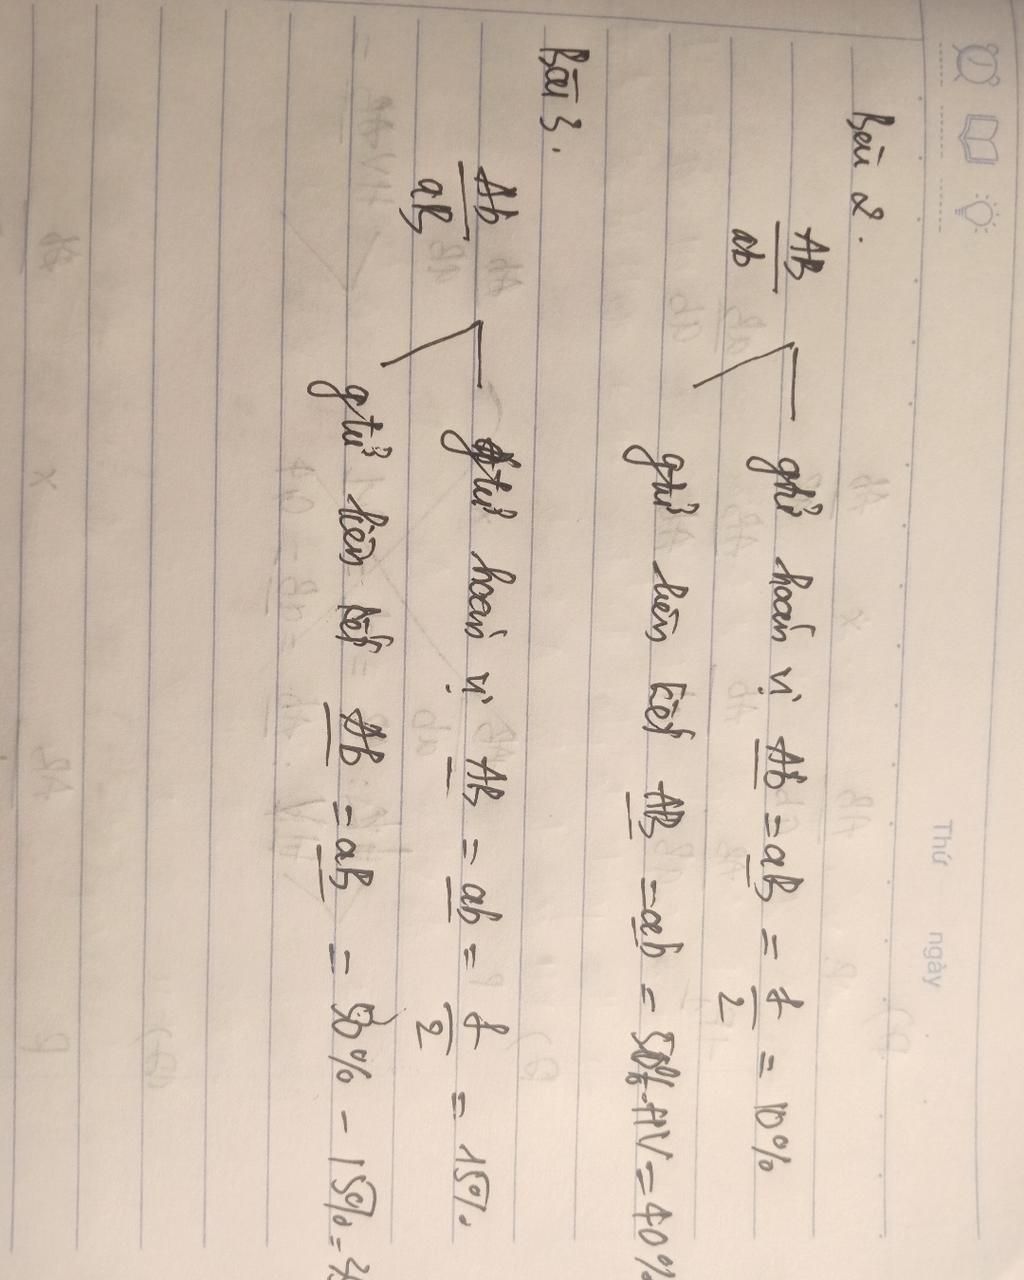 Thứ ngày
Bài 2.
AB
ab
gtử hoán vị Ab = aB = f/2 = 10%
gtử liên kết AB = ab = 50% - HV = 40%
Bài 3.
Ab
aB
gtử hoán vị AB = ab = f/2 = 15%
gtử liên kết Ab = aB = 50% - 15% =